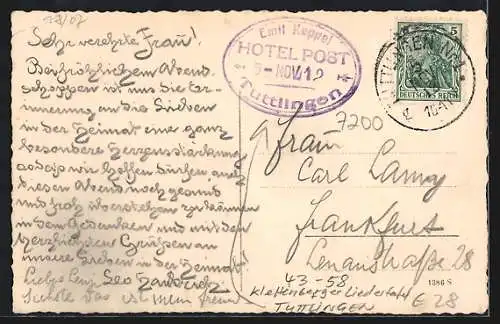 Sehr verehrte Frau!
Bei fröhlichem Abend-
schoppen ist uns die Er-
innerung an die Lieben
in der Heimat eine ganz
besondere Herzensstärkung
sodaß wir hoffen dürfen auch
diesen Abend noch gesund
und froh überstehen zu können
in dem Gedenken und mit den
herzlichsten Grüßen an
unsere Lieben in der Heimat!
Leo
Emil Keppel
HOTEL POST
5-NOV.12
Tuttlingen
5
DEUTSCHES REICH
TUTTLINGEN
7200
Frau
Carl Lamy
Frankfurt
Lenaustraße 28
43-58
Klettenberger Liederfahrt
TUTTLINGEN
1386 S
€ 28